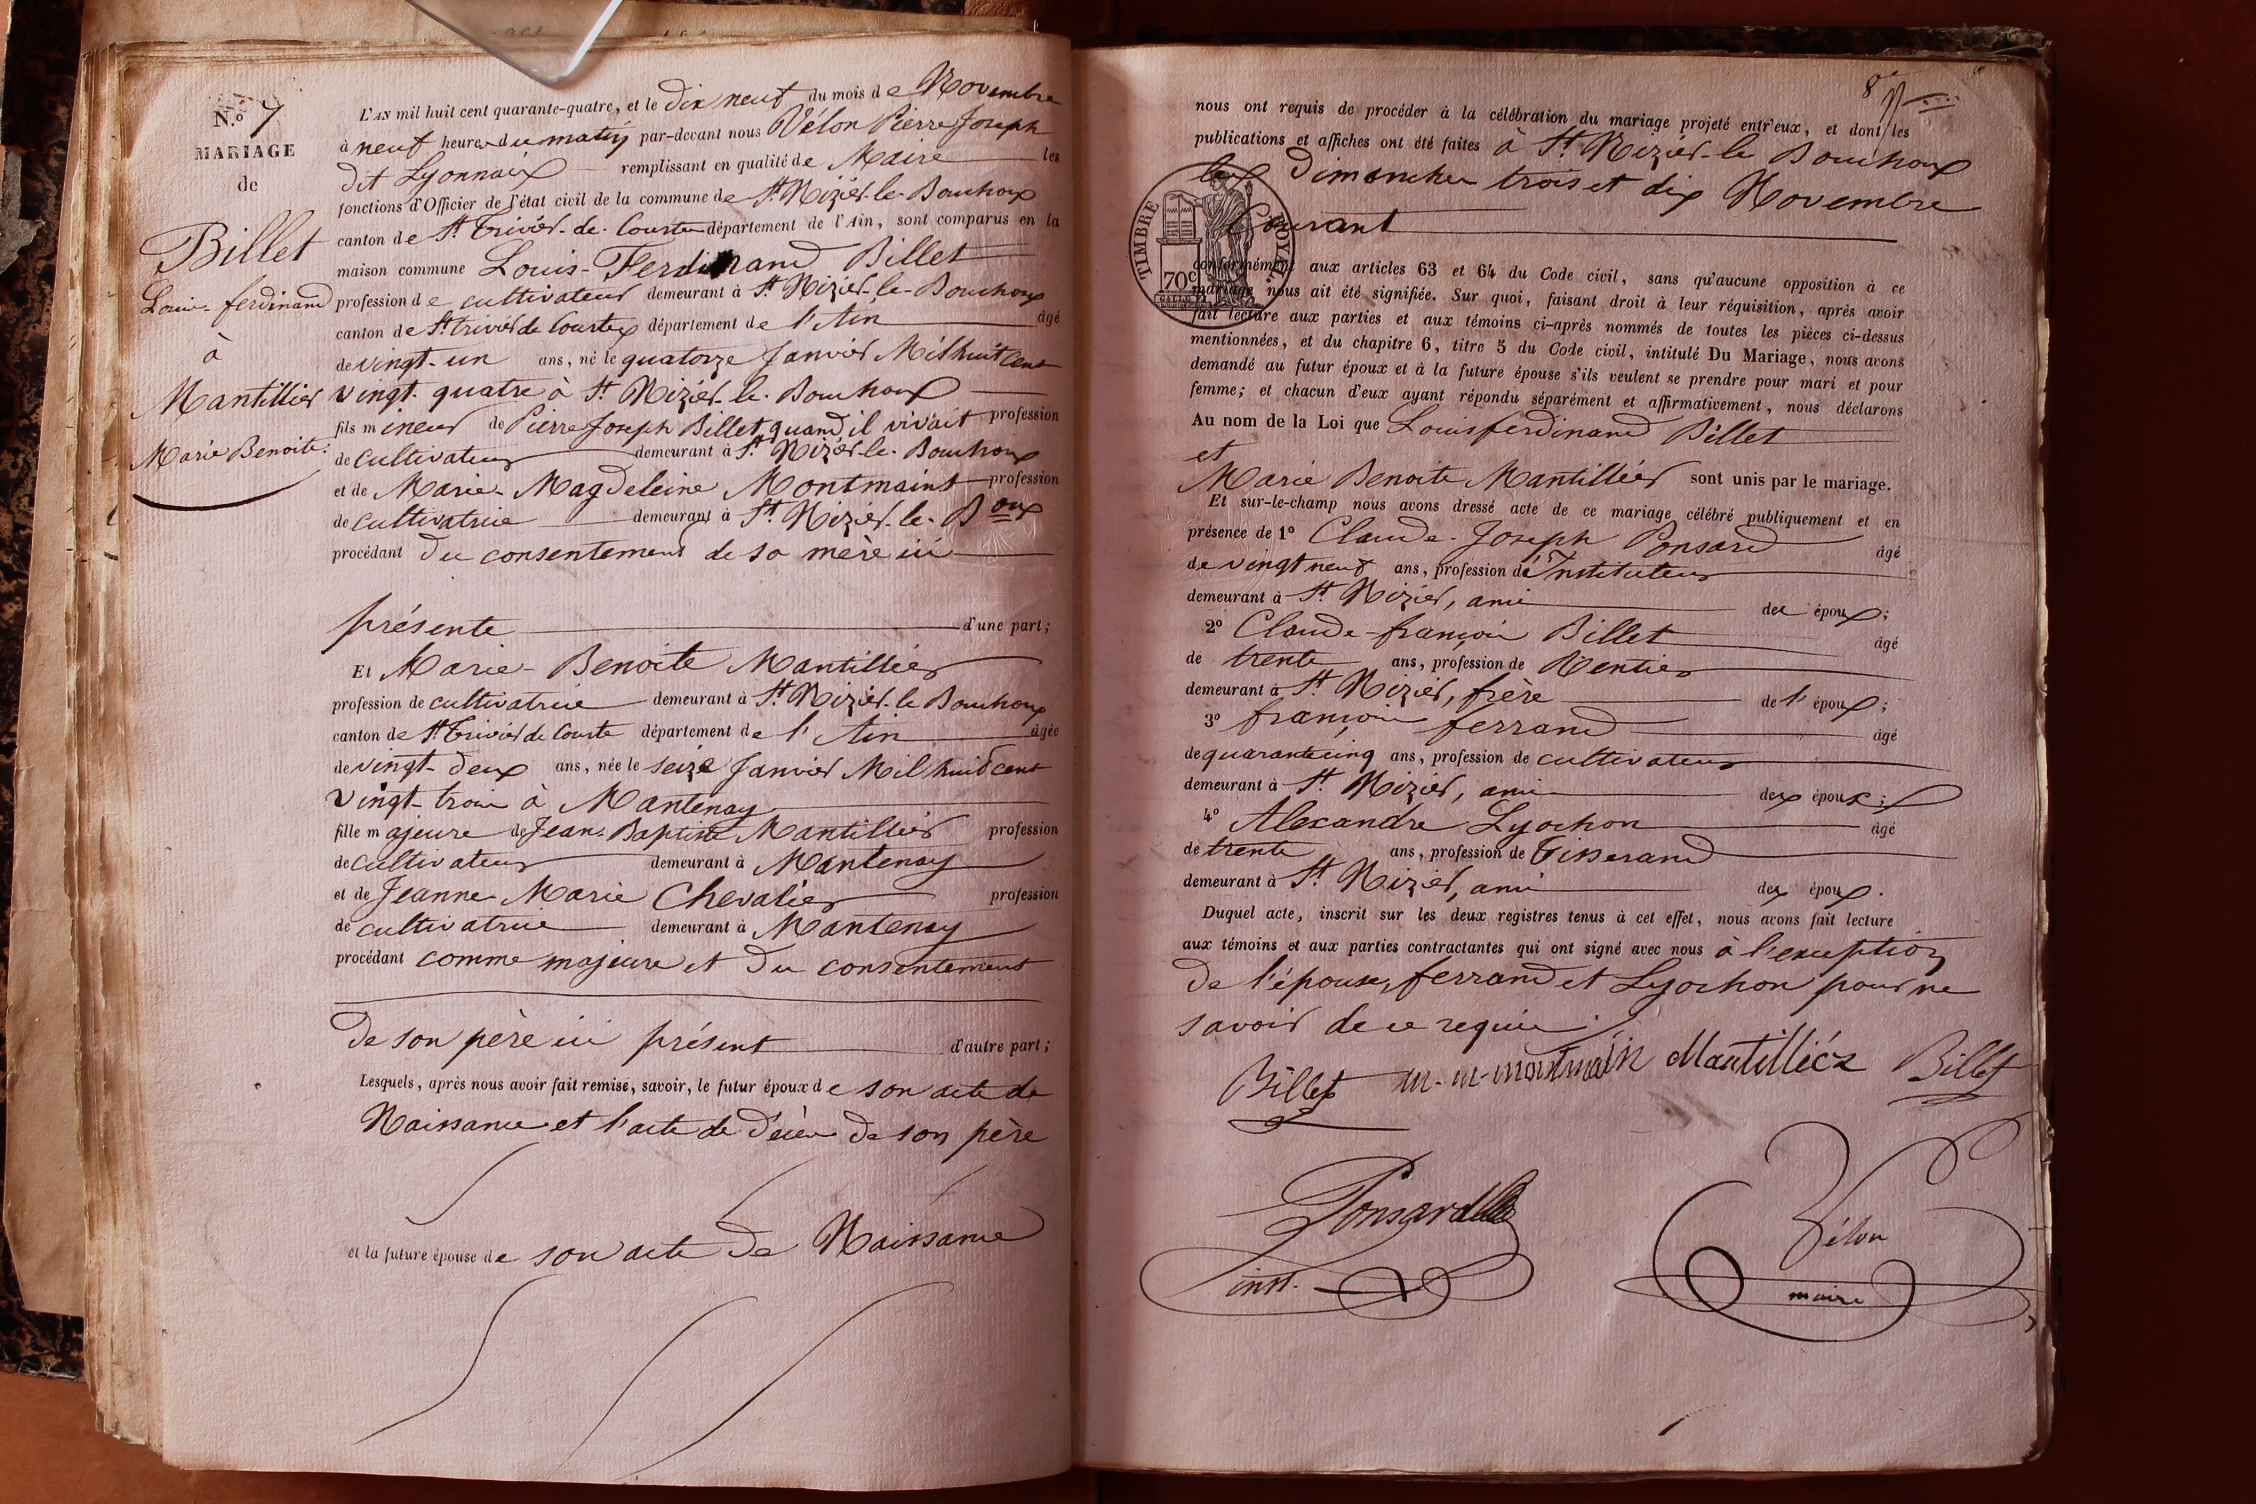 N.º 7
MARIAGE
de
Billet
Louis-ferdinand
à
Mantillier
Marie Benoite.
L'AN mil huit cent quarante-quatre, et le dix neuf du mois de Novembre
à neuf heures du matin par-devant nous Vélon Pierre Joseph
dit Lyonnais remplissant en qualité de Maire les
fonctions d'Officier de l'état civil de la commune de St Nizier-le-Bouchoux
canton de St Trivier-de-Courtes département de l'Ain, sont comparus en la
maison commune Louis-Ferdinand Billet
profession de cultivateur demeurant à St Nizier-le-Bouchoux
canton de St trivier de Courtes département de l'Ain âgé
de vingt-un ans, né le quatorze Janvier Mil huit Cent
vingt-quatre à St Nizier-le-Bouchoux
fils mineur de Pierre Joseph Billet, quand il vivait profession
de cultivateur demeurant à St Nizier-le-Bouchoux
et de Marie-Magdeleine Montmaint profession
de cultivatrice demeurant à St Nizier-le-Boux
procédant du consentement de sa mère ici
présente d'une part;
Et Marie-Benoite Mantillier
profession de cultivatrice demeurant à St Nizier-le Bouchoux
canton de St Trivier de Courte département de l'Ain âgée
de vingt-deux ans, née le seize Janvier Mil huit cent
vingt-trois à Mantenay
fille majeure de Jean-Baptiste Mantillier profession
de cultivateur demeurant à Mantenay
et de Jeanne-Marie Chevalier profession
de cultivatrice demeurant à Mantenay
procédant comme majeure et du consentement
de son père ici présent d'autre part;
Lesquels, après nous avoir fait remise, savoir, le futur époux de son acte de
Naissance et l'acte de décès de son père
et la future épouse de son acte de Naissance
8
nous ont requis de procéder à la célébration du mariage projeté entr'eux, et dont les
publications et affiches ont été faites à St Nizier-le Bouchoux
les Dimanches trois et dix Novembre
Courant
TIMBRE ROYAL
70c
conformément aux articles 63 et 64 du Code civil, sans qu'aucune opposition à ce
mariage nous ait été signifiée. Sur quoi, faisant droit à leur réquisition, après avoir
fait lecture aux parties et aux témoins ci-après nommés de toutes les pièces ci-dessus
mentionnées, et du chapitre 6, titre 5 du Code civil, intitulé Du Mariage, nous avons
demandé au futur époux et à la future épouse s'ils veulent se prendre pour mari et pour
femme; et chacun d'eux ayant répondu séparément et affirmativement, nous déclarons
Au nom de la Loi que Louis ferdinand Billet
et
Marie Benoite Mantillier sont unis par le mariage.
Et sur-le-champ nous avons dressé acte de ce mariage célébré publiquement et en
présence de 1º Claude-Joseph Ponsard âgé
de vingt neuf ans, profession d'Instituteur
demeurant à St Nizier, ami des époux;
2º Claude-françois Billet âgé
de trente ans, profession de Rentier
demeurant à St Nizier, frère de l'époux;
3º françois ferrand âgé
de quarante cinq ans, profession de cultivateur
demeurant à St Nizier, ami des époux;
4º Alexandre Lyochon âgé
de trente ans, profession de Tisserand
demeurant à St Nizier, ami des époux.
Duquel acte, inscrit sur les deux registres tenus à cet effet, nous avons fait lecture
aux témoins et aux parties contractantes qui ont signé avec nous à l'exception
de l'épouse, ferrand et Lyochon pour ne
savoir de ce requis.
Billet m-m-montmain Mantilliéz Billet
Ponsard
inst.
Vélon
maire